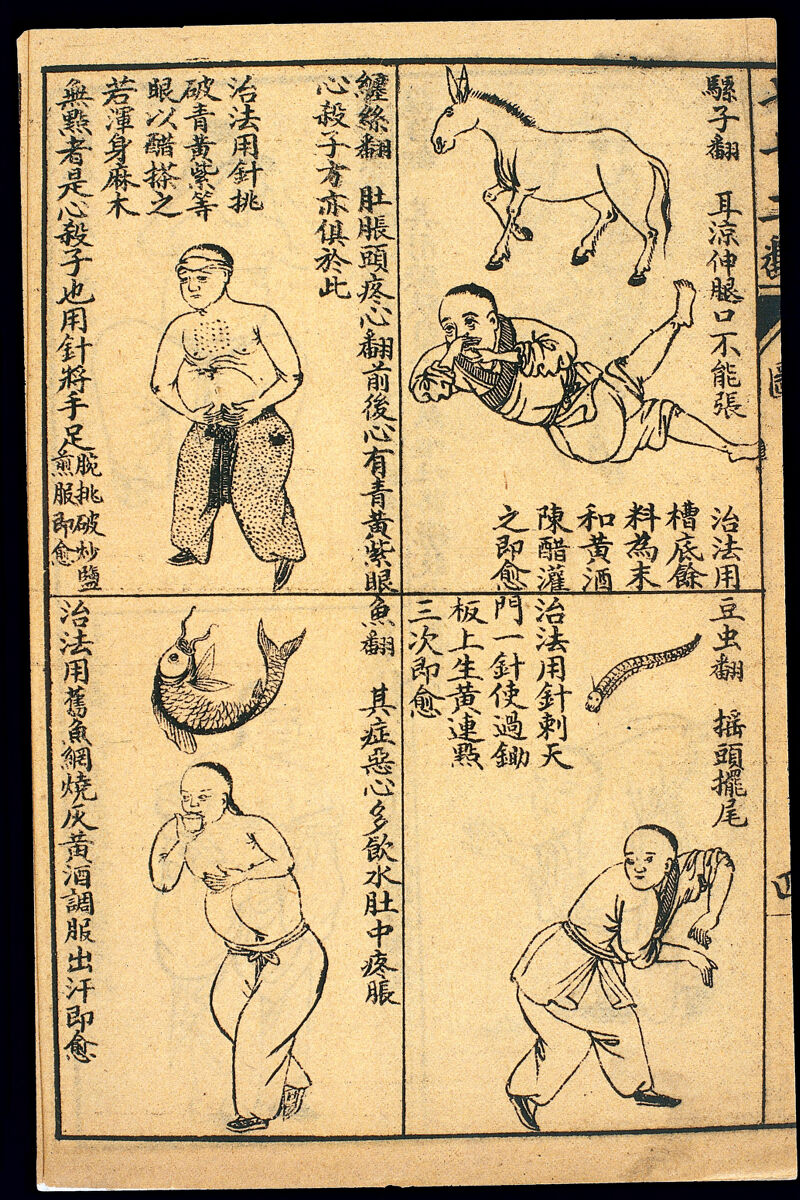 騾子翻 耳涼伸腿口不能張
治法用
槽底餘
料為末
和黃酒
陳醋灌
之即愈
豆虫翻 搖頭擺尾
治法用針刺天
門一針使過鋤
板上生黃連點
三次即愈
纏絲翻 肚脹頭疼心翻前後心有青黃紫眼
心殺子方亦俱於此
治法用針挑
破青黃紫等
眼以醋搽之
若渾身麻木
無點者是心殺子也用針將手足
腕挑破炒鹽
煎服即愈
魚翻 其症惡心多飲水肚中疼脹
治法用舊魚網燒灰黃酒調服出汗即愈